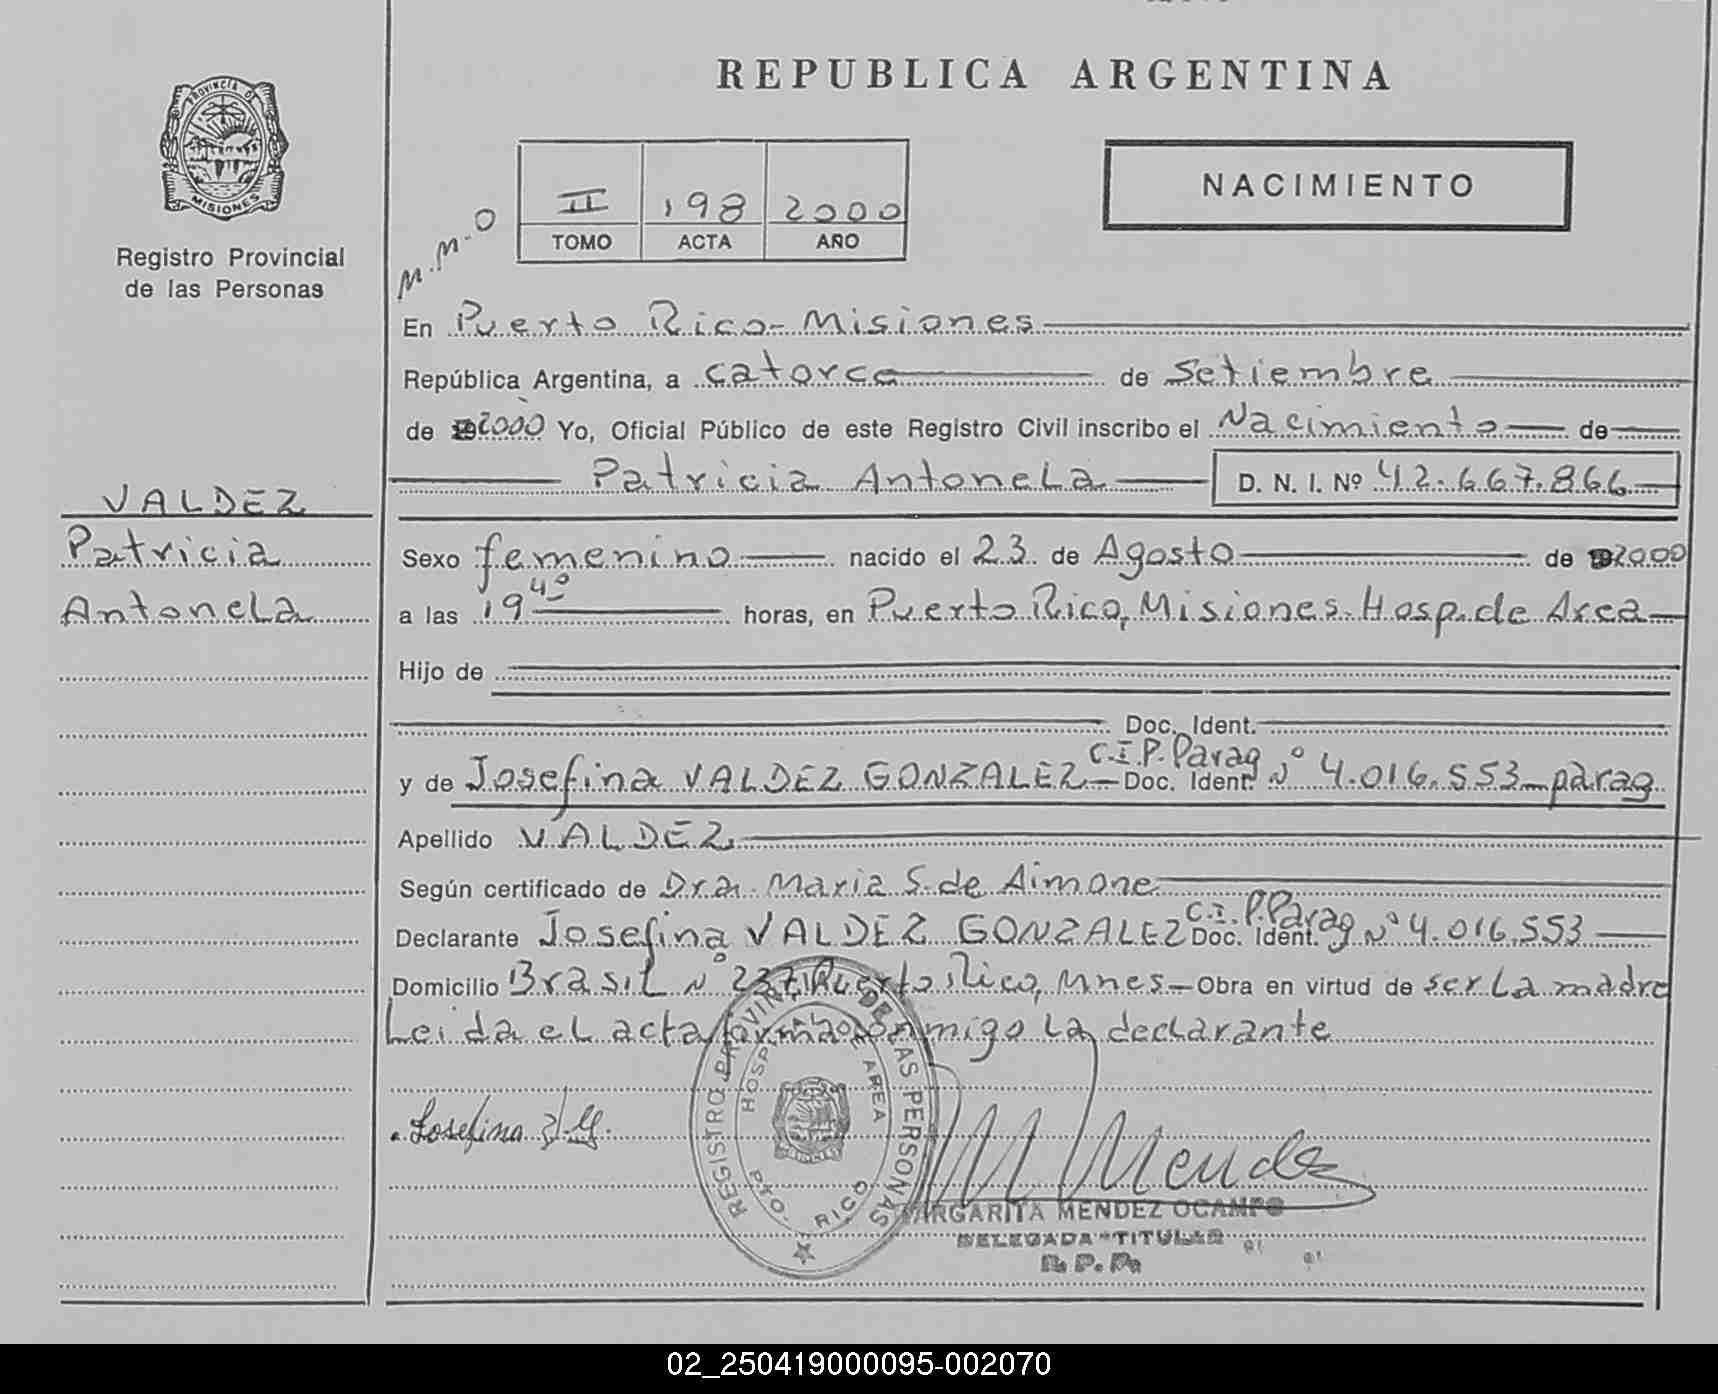 REPUBLICA ARGENTINA
PROVINCIA DE
MISIONES
Registro Provincial
de las Personas
NACIMIENTO
II 198 2000
TOMO ACTA AÑO
M.M.O
En Puerto Rico - Misiones
República Argentina, a catorce de Setiembre
de 2000 Yo, Oficial Público de este Registro Civil inscribo el Nacimiento de
Patricia Antonela D. N. I. Nº 42.667.866
VALDEZ
Patricia
Antonela
Sexo femenino nacido el 23 de Agosto de 2000
a las 19 40 horas, en Puerto Rico, Misiones. Hosp. de Area
Hijo de
Doc. Ident.
y de Josefina VALDEZ GONZALEZ - Doc. Ident. C.I.P. Parag Nº 4.016.553 - parag
Apellido VALDEZ
Según certificado de Dra. Maria S. de Aimone
Declarante Josefina VALDEZ GONZALEZ Doc. Ident. C.I.P. Parag Nº 4.016.553
Domicilio Brasil Nº 237 Puerto Rico, Mnes - Obra en virtud de ser la madre
Leida el acta firma conmigo la declarante
Josefina V.G.
REGISTRO PROVINCIAL DE LAS PERSONAS
HOSPITAL DE AREA
PTO. RICO
M Mendez
MARGARITA MENDEZ OCAMPO
DELEGADA TITULAR
R. P. P.
02_250419000095-002070